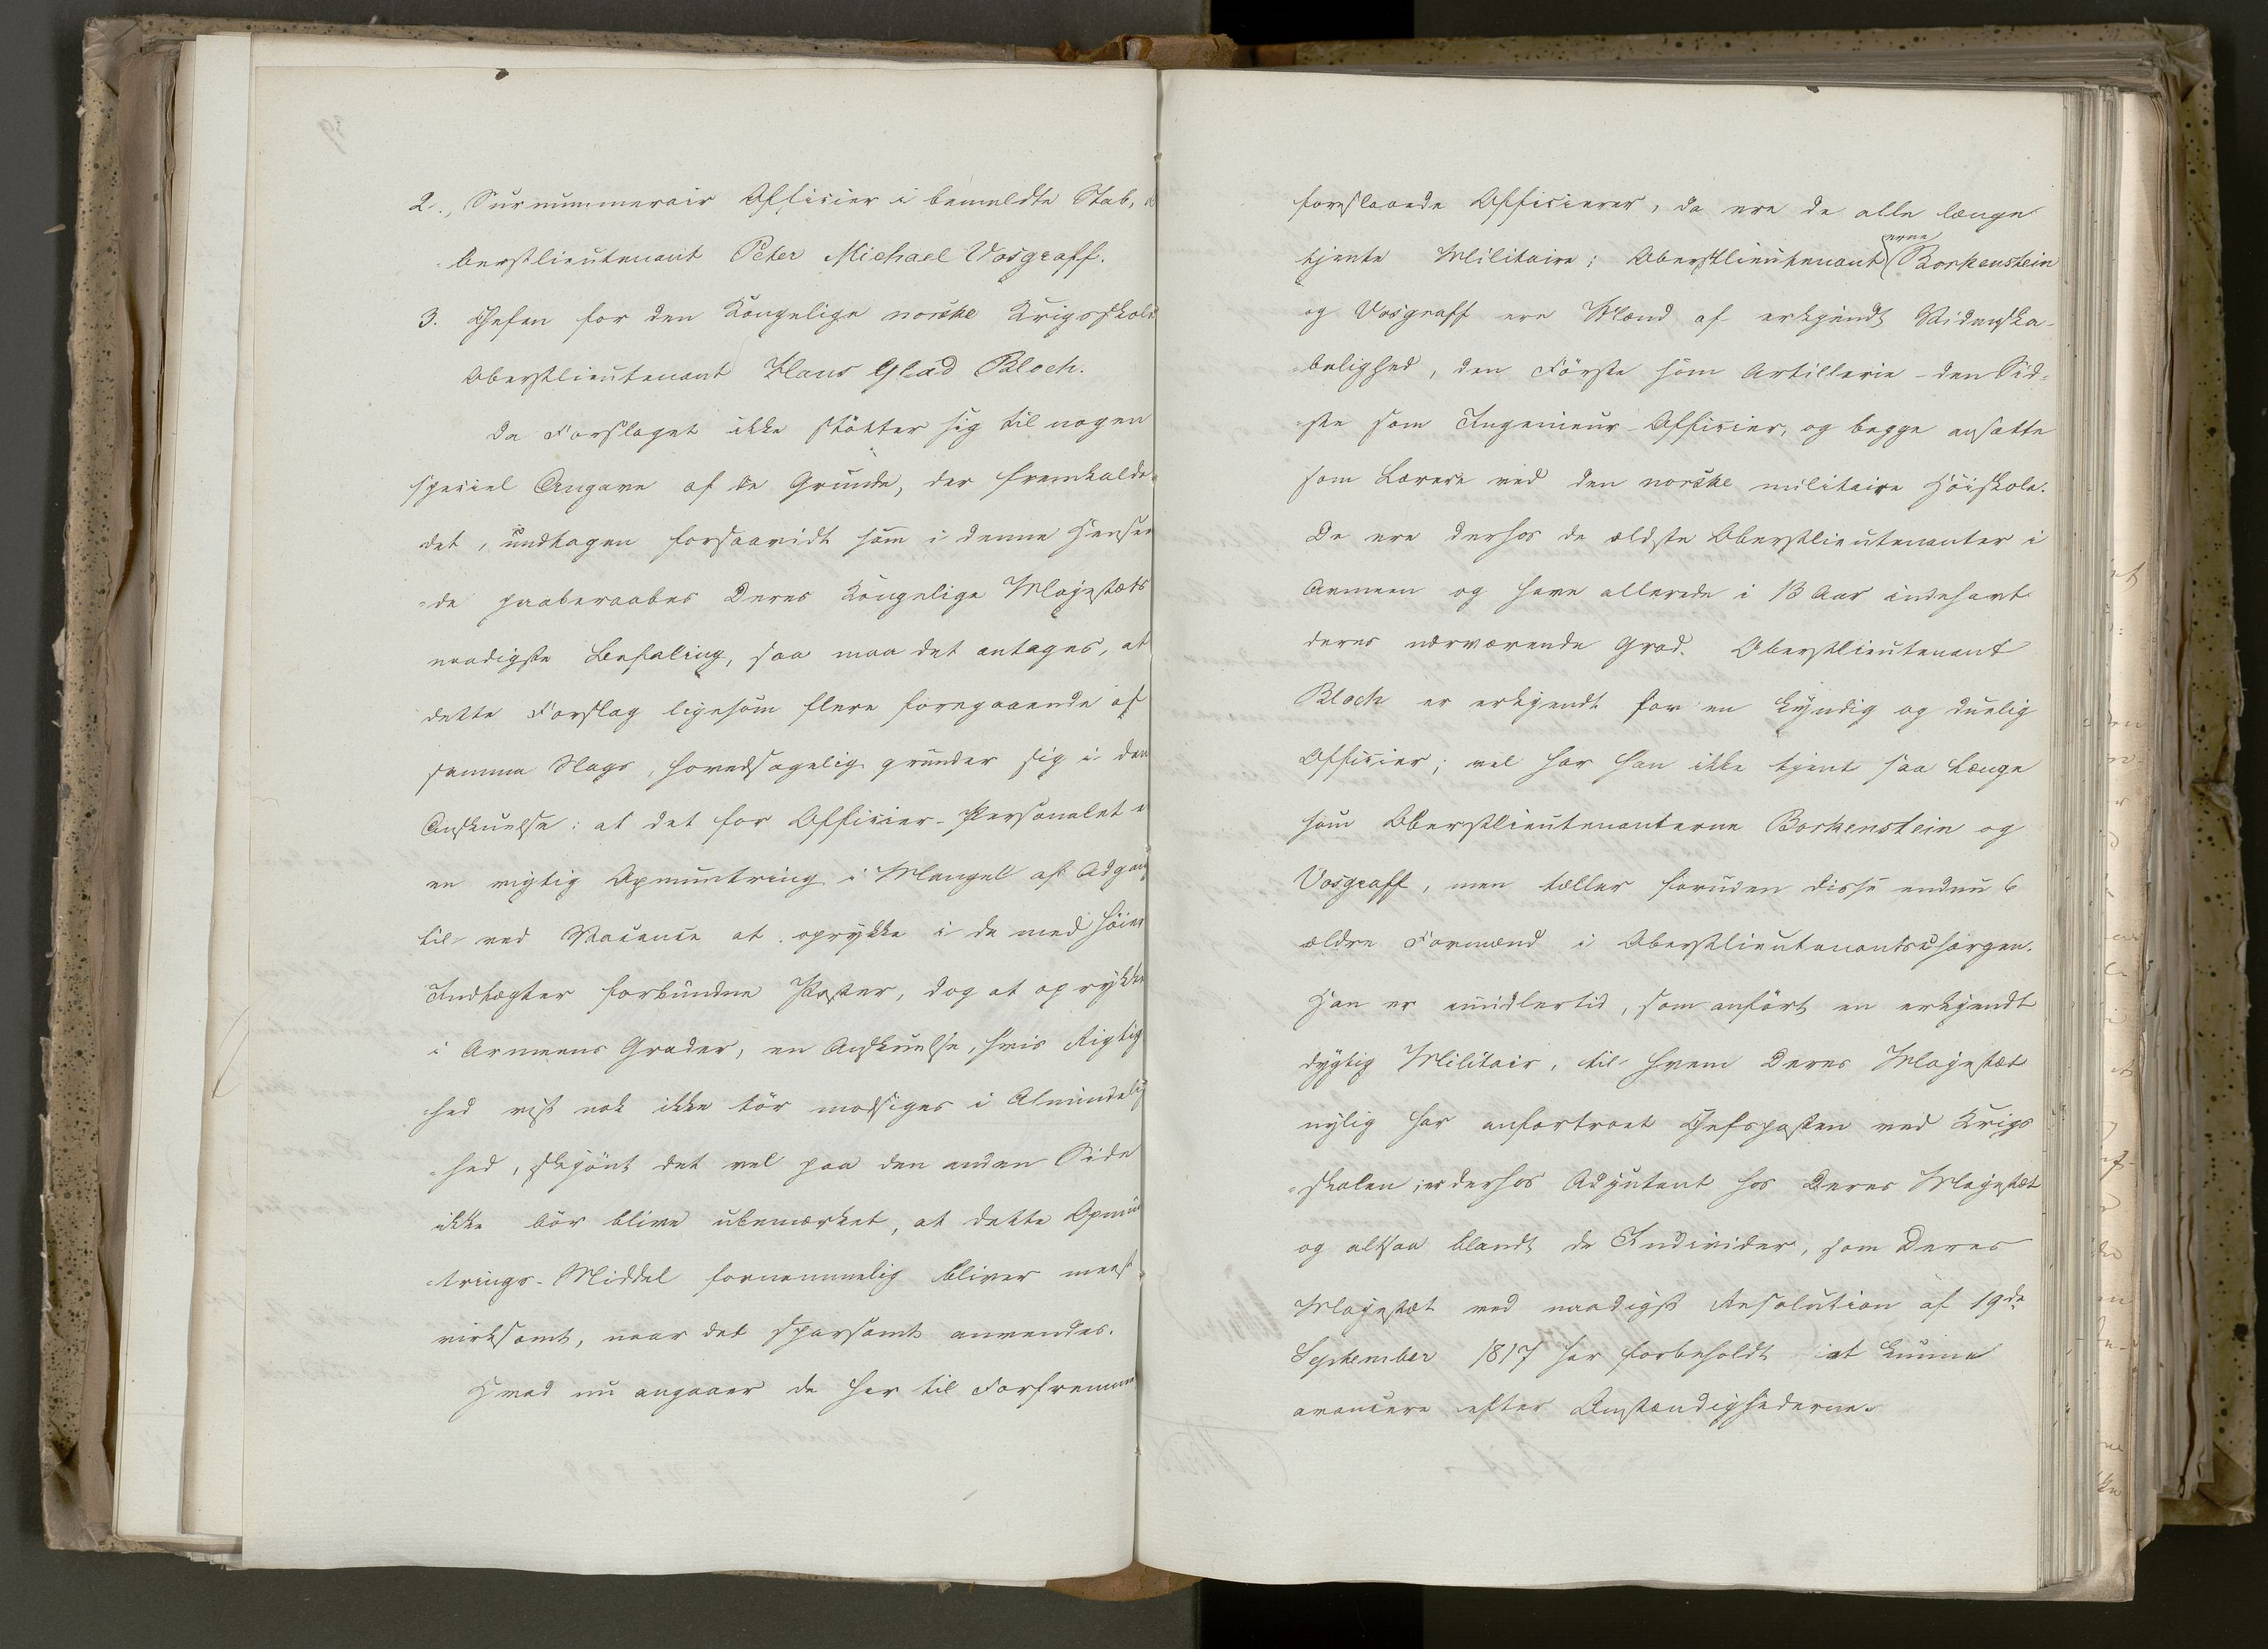 2., Surnummerair Officier i bemeldte Stab, O
berstlieutenant Peter Michael Vosgraff.
3. Chefen for den Kongelige norske Krigsskole
Oberstlieutenant Hans Glad Bloch.
Da Forslaget ikke støtter sig til nogen
speciel Angave af de Grunde, der fremkaldte
det, undtagen forsaavidt som i denne Henseen
de paaberaabes Deres Kongelige Majestæts
naadigste Befaling, saa maa det antages, at
dette Forslag ligesom flere foregaaende af
samme Slags, hovedsagelig grunder sig i den
Anskuelse: at det for Officier-Personalet er
en vigtig Opmuntring i Mangel af Adgang
til ved Vacance at oprykke i de med høiere
Indtægter forbundne Poster, dog at oprykke
i Armeens Grader, en Anskuelse, hvis Rigtig
hed vist nok ikke tör modsiges i Almindelig
hed, skjönt det vel paa den anden Side
ikke bör blive ubemærket, at dette Opmun
trings-Middel fornemmelig bliver meest
virksomt, naar det sparsomt anvendes.
Hvad nu angaaer de her til Forfremmelse
foreslaaede Officierer, da ere de alle længe
tjente Militaire; Oberstlieutenanterne Borkenstein
og Vosgraff ere Mænd af erkjendt Videnska-
belighed, den Förste som Artillerie- den Sid-
ste som Ingenieur-Officier, og begge ansatte
som Lærere ved den norske militaire Höiskole.
De ere derhos de ældste Oberstlieutenanter i
Armeen og have allerede i 13 Aar indehavt
deres nærværende Grad. Oberstlieutenant
Bloch er erkjendt for en kyndig og duelig
Officier; vel har han ikke tjent saa længe
som Oberstlieutenanterne Borkenstein og
Vosgraff, men tæller foruden disse endnu 6
ældre Formænd i Oberstlieutenantschargen.
Han er imidlertid, som anfört en erkjendt
dygtig Militair, til hvem Deres Majestæt
nylig har anfortroet Chefsposten ved Krigs
skolen; er derhos Adjutant hos Deres Majestæt
og altsaa blandt de Individer, som Deres
Majestæt ved naadigst Resolution af 19de
September 1817 har forbeholdt at kunne
avancere efter Omstændighederne.